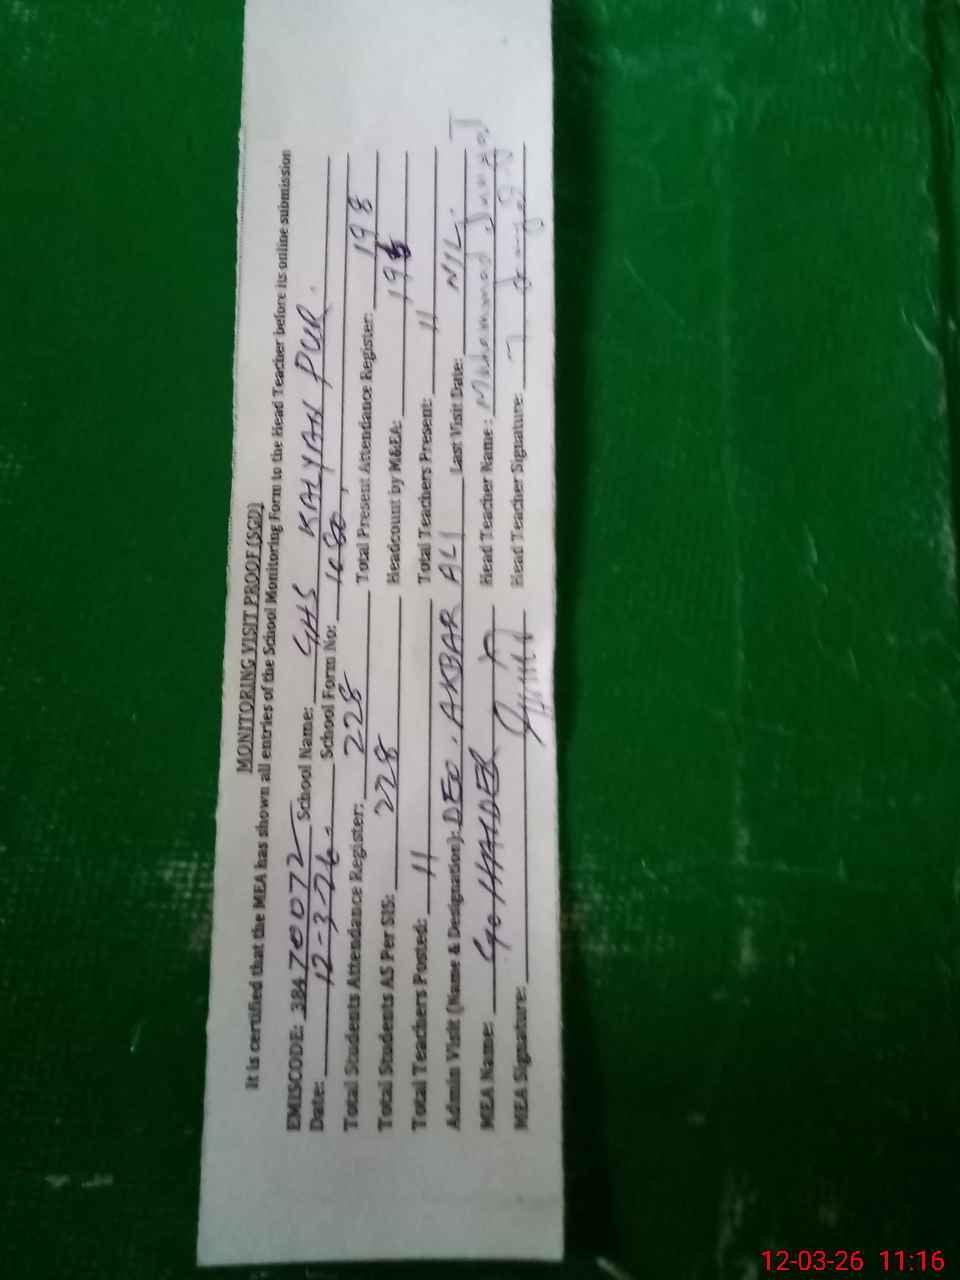 MONITORING VISIT PROOF (SGD)
It is certified that the MEA has shown all entries of the School Monitoring Form to the Head Teacher before its online submission
EMISCODE: 38470072 School Name: GHS KALYAN PUR.
Date: 12-3-26. School Form No:
Total Students Attendance Register: 228 Total Present Attendance Register: 198
Total Students AS Per SIS: 228 Headcount by M&EA:
Total Teachers Posted: 11 Total Teachers Present: 11
Admin Visit (Name & Designation): DEO. AKBAR ALI Last Visit Date: NIL.
MEA Name: HAIDER Head Teacher Name: Muhammad
MEA Signature: Head Teacher Signature:
12-03-26 11:16